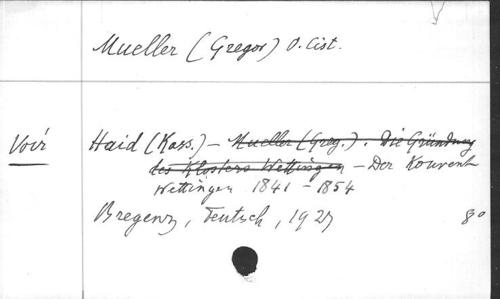 Mueller (Gregor) O. Cist.
Voir Haid (Kass.) – Mueller (Greg.). Die Gründung
des Klosters Wettingen – Der Konvent
Wettingen 1841 – 1854
Bregenz, Teutsch, 1927 8°